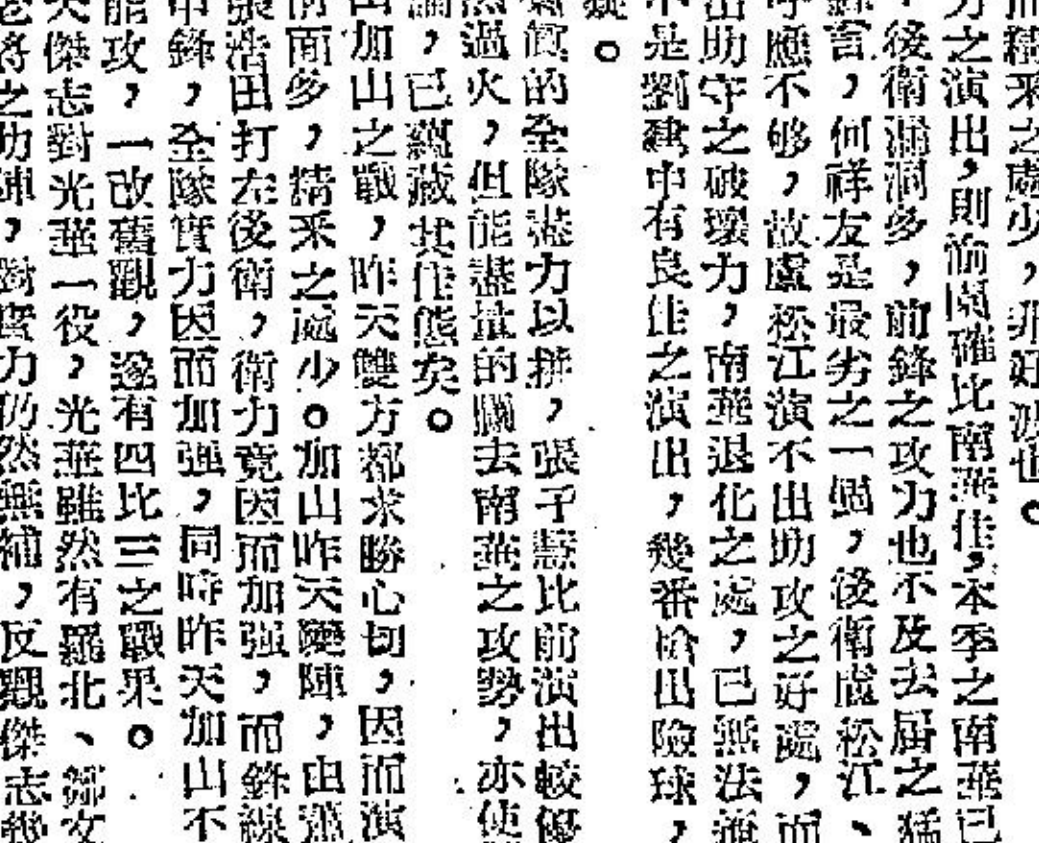 而精采之處少，非好波也。
力之演出，則前園確比南華佳，本季之南華已
，後衛漏洞多，前鋒之攻力也不及去屆之猛
鋒言，何祥友是最劣之一個，後衛盧松江、
呼應不够，故盧松江演不出助攻之好處，而
出助守之破壞力，南華退化之處，已無法施
中是劉建中有良佳之演出，幾番搶出險球，
疑。
氣眞的全隊盡力以拼，張子慧比前演出較優
然過火，但能盡量的關去南華之攻勢，亦使
論，已蘊藏其佳態矣。
山加山之戰，昨天雙方都求勝心切，因而演
前面多，精采之處少。加山昨天變陣，由蕭
張浩田打左後衛，衛力竟因而加强，而鋒線
中鋒，全隊實力因而加强，同時昨天加山不
能攻，一改舊觀，遂有四比三之戰果。
天傑志對光華一役，光華雖然有羅北、鄒文
老將之助陣，對實力仍然無補，反觀傑志幾